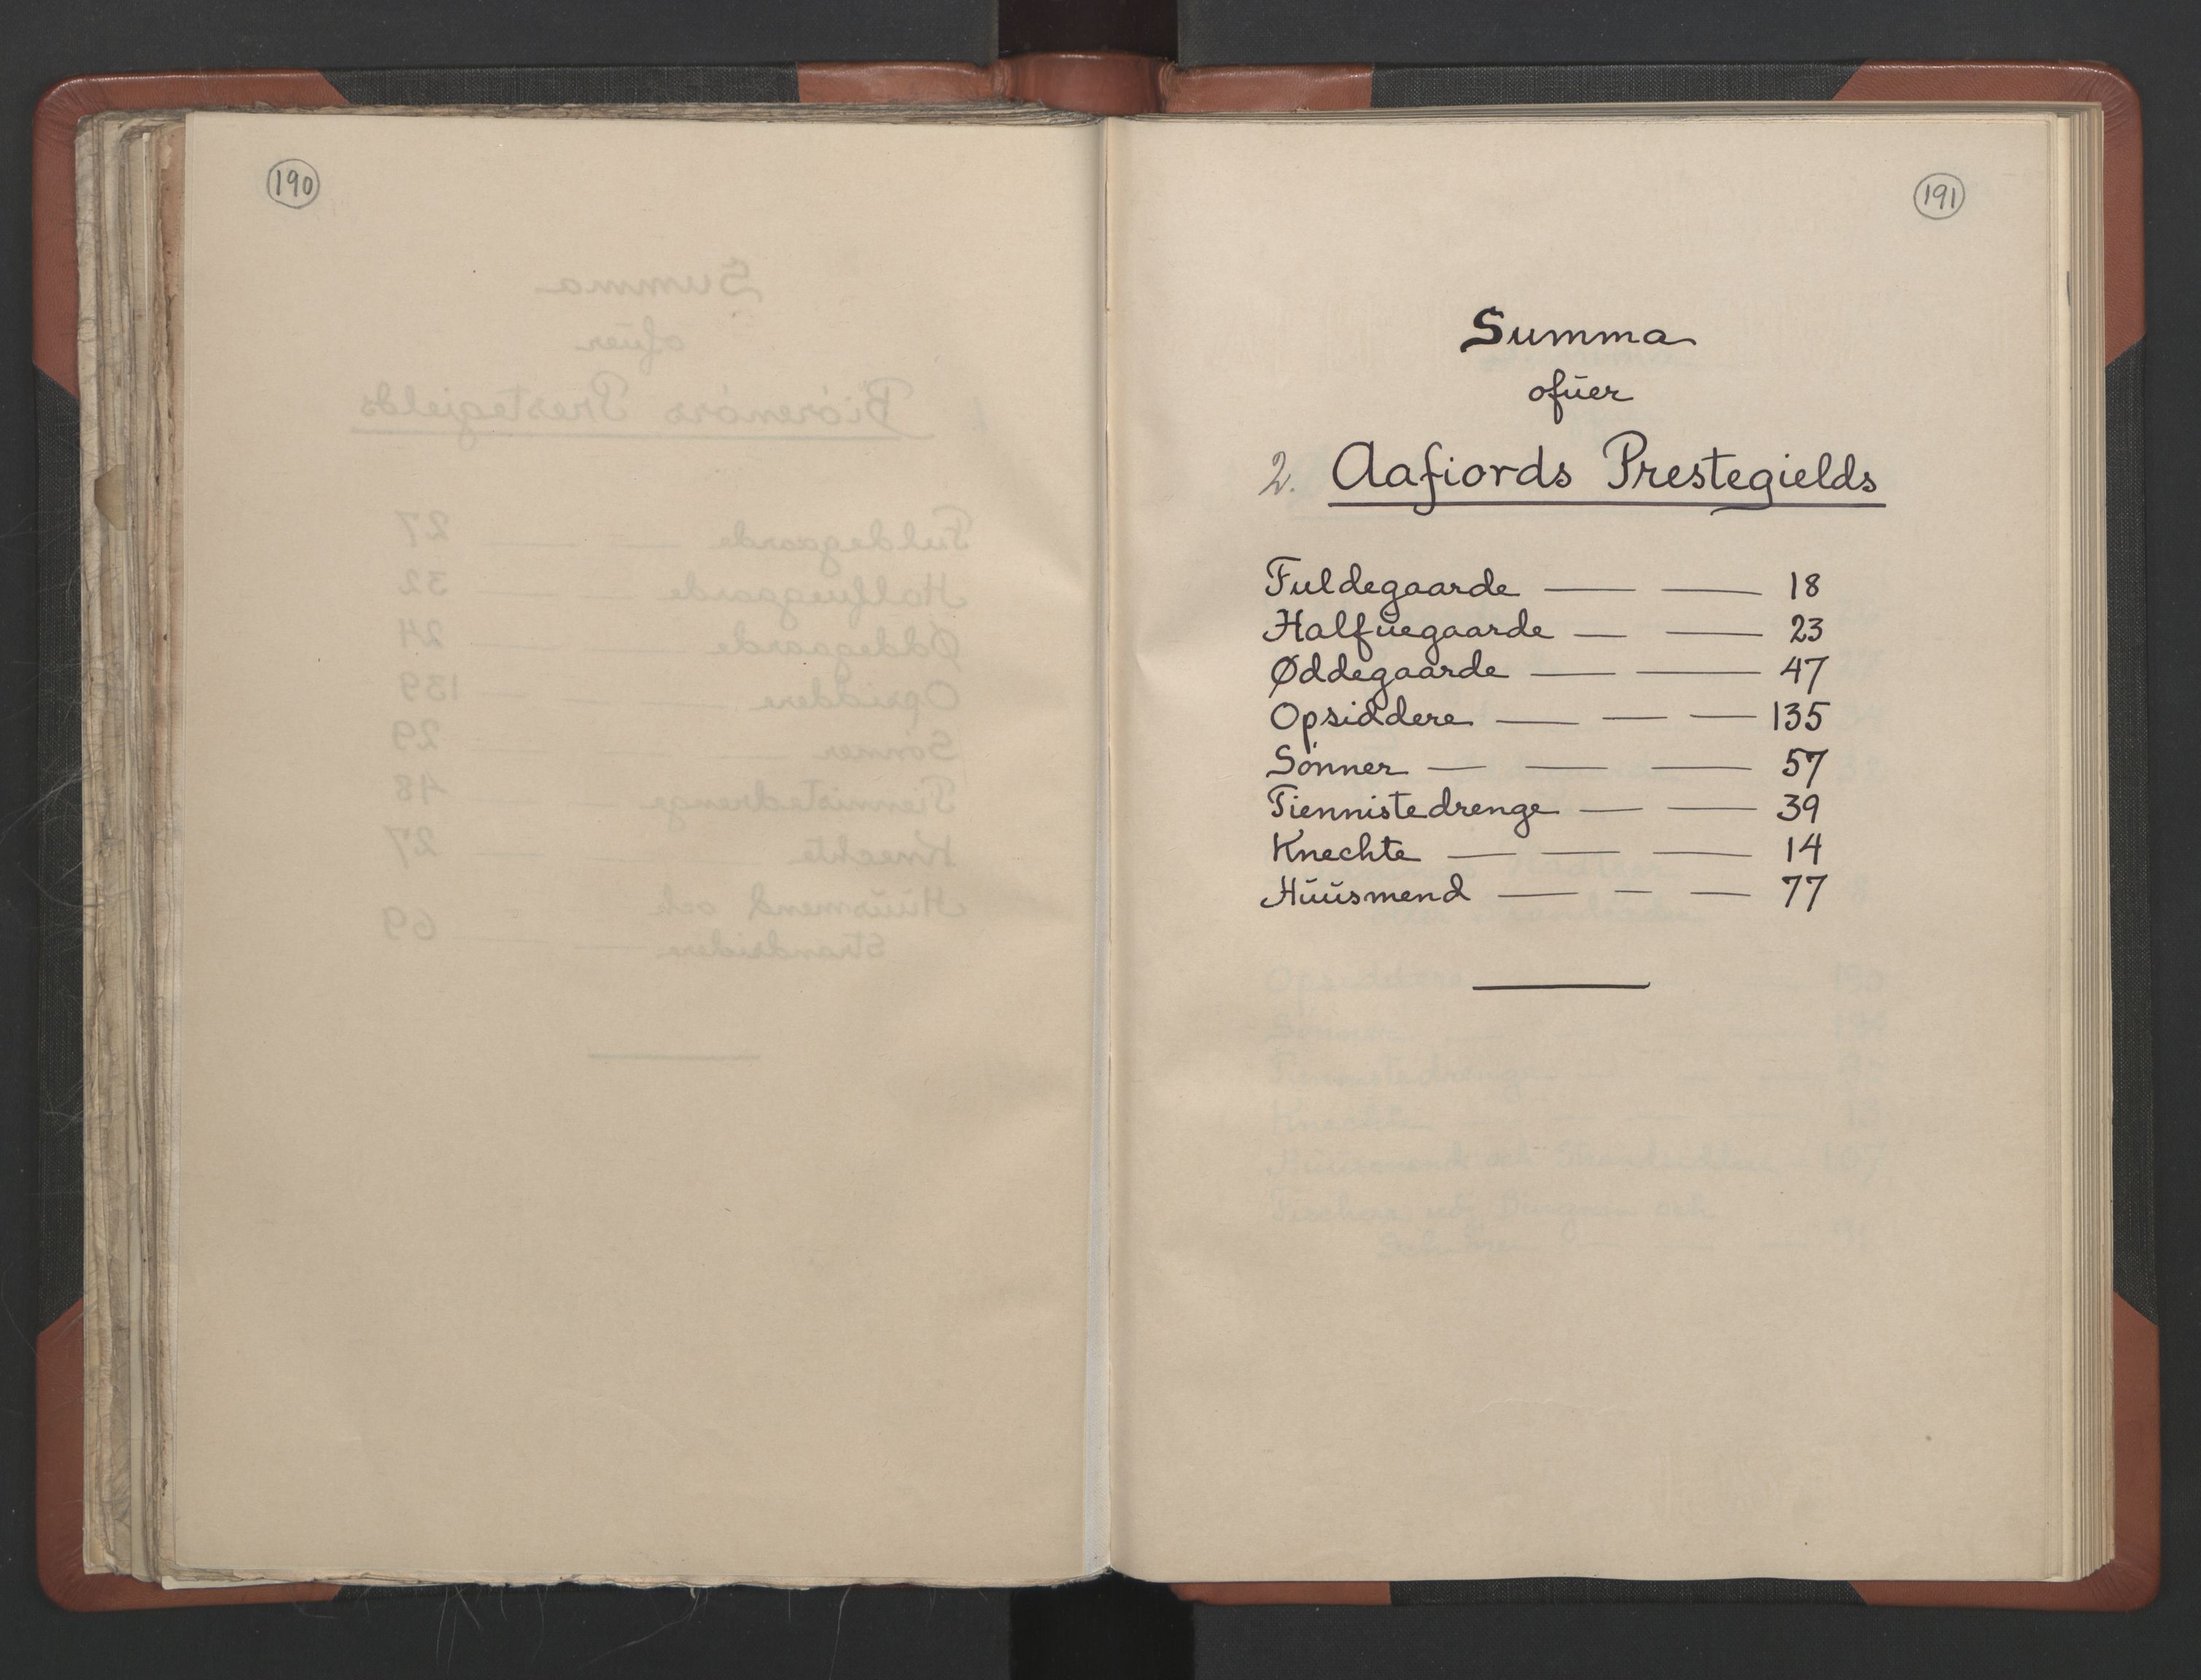 190
191
Summa
ofũer
2. Aafiords Prestegields
Fuldegaarde — — 18
Halfũegaarde — — 23
Øddegaarde — — 47
Opsiddere — — — 135
Sønner — — — 57
Tiennistedrenge — — 39
Knechte — — — 14
Hũũsmend — — — 77